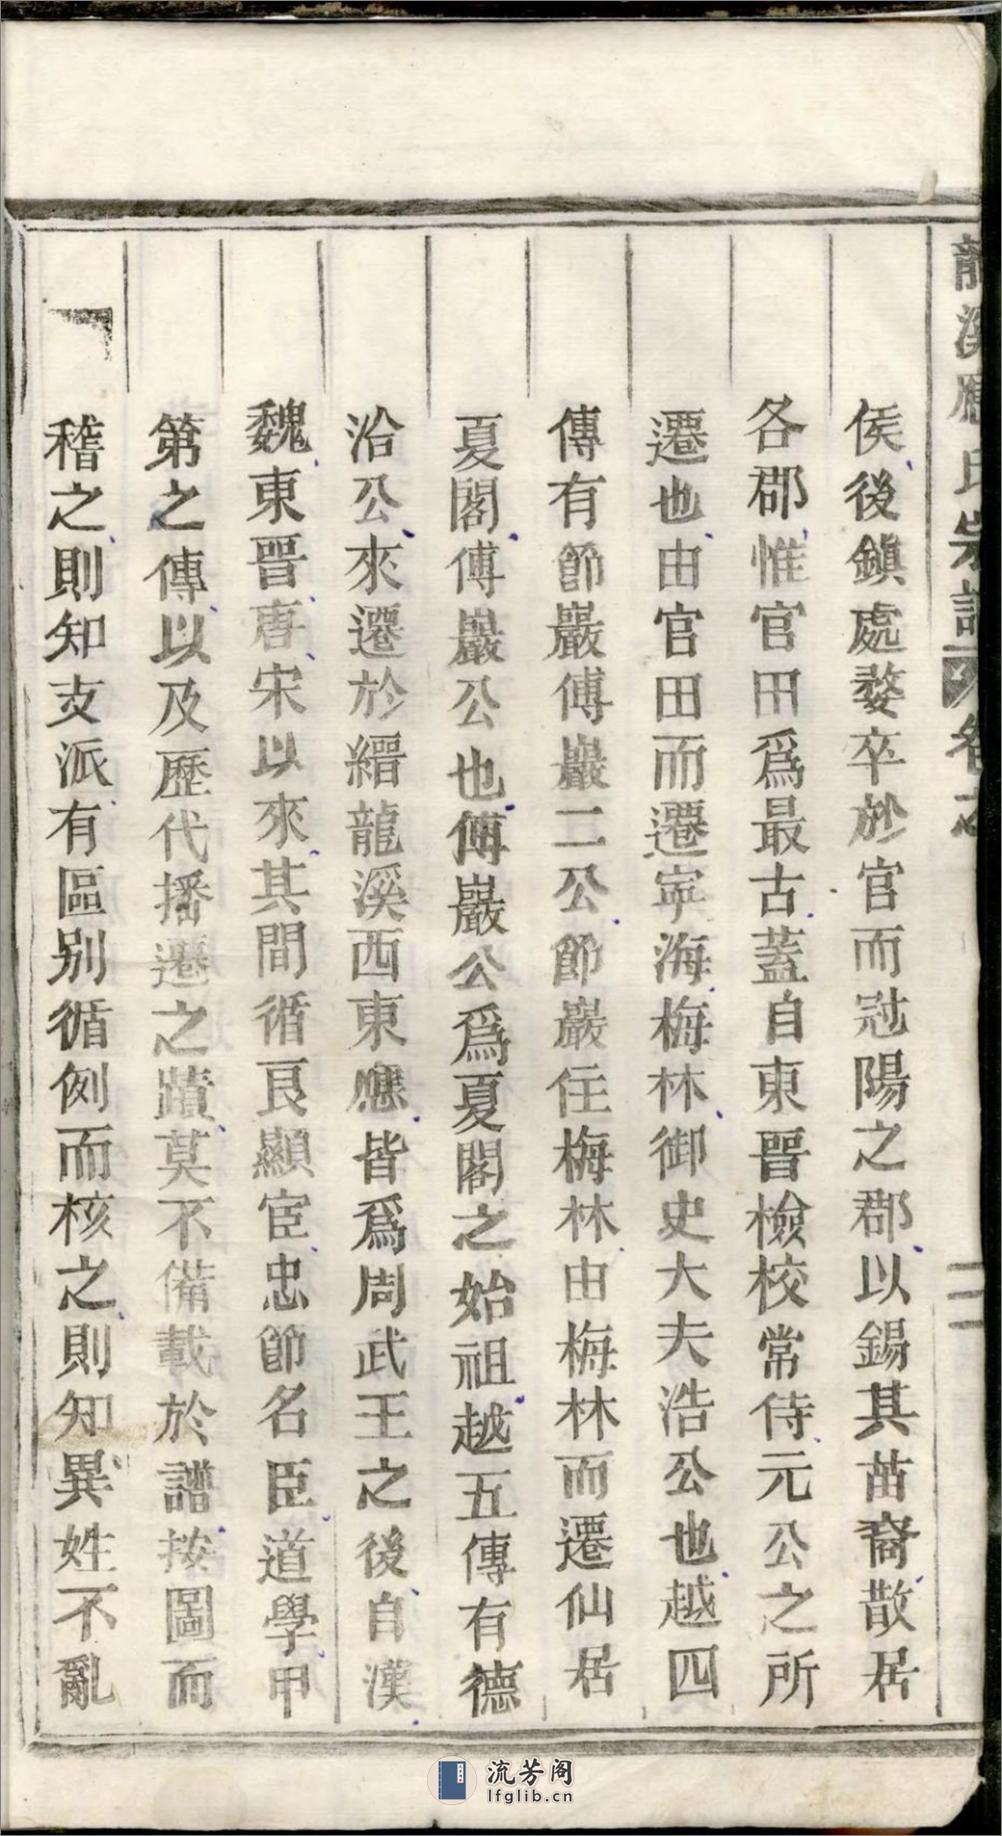 龍溪應氏宗譜 卷之 二
侯後鎮處婺卒於官而冠陽之郡以錫其苗裔散居
各郡惟官田爲最古蓋自東晉檢校常侍元公之所
遷也由官田而遷寧海梅林御史大夫浩公也越四
傳有節巖傅巖二公節巖住梅林由梅林而遷仙居
夏閣傅巖公也傅巖公爲夏閣之始祖越五傳有德
洽公來遷於縉龍溪西東應皆爲周武王之後自漢
魏東晉唐宋以來其間循良顯宦忠節名臣道學甲
第之傳以及歷代播遷之蹟莫不備載於譜按圖而
稽之則知支派有區别循例而核之則知異姓不亂
流芳阁
lfglib.cn